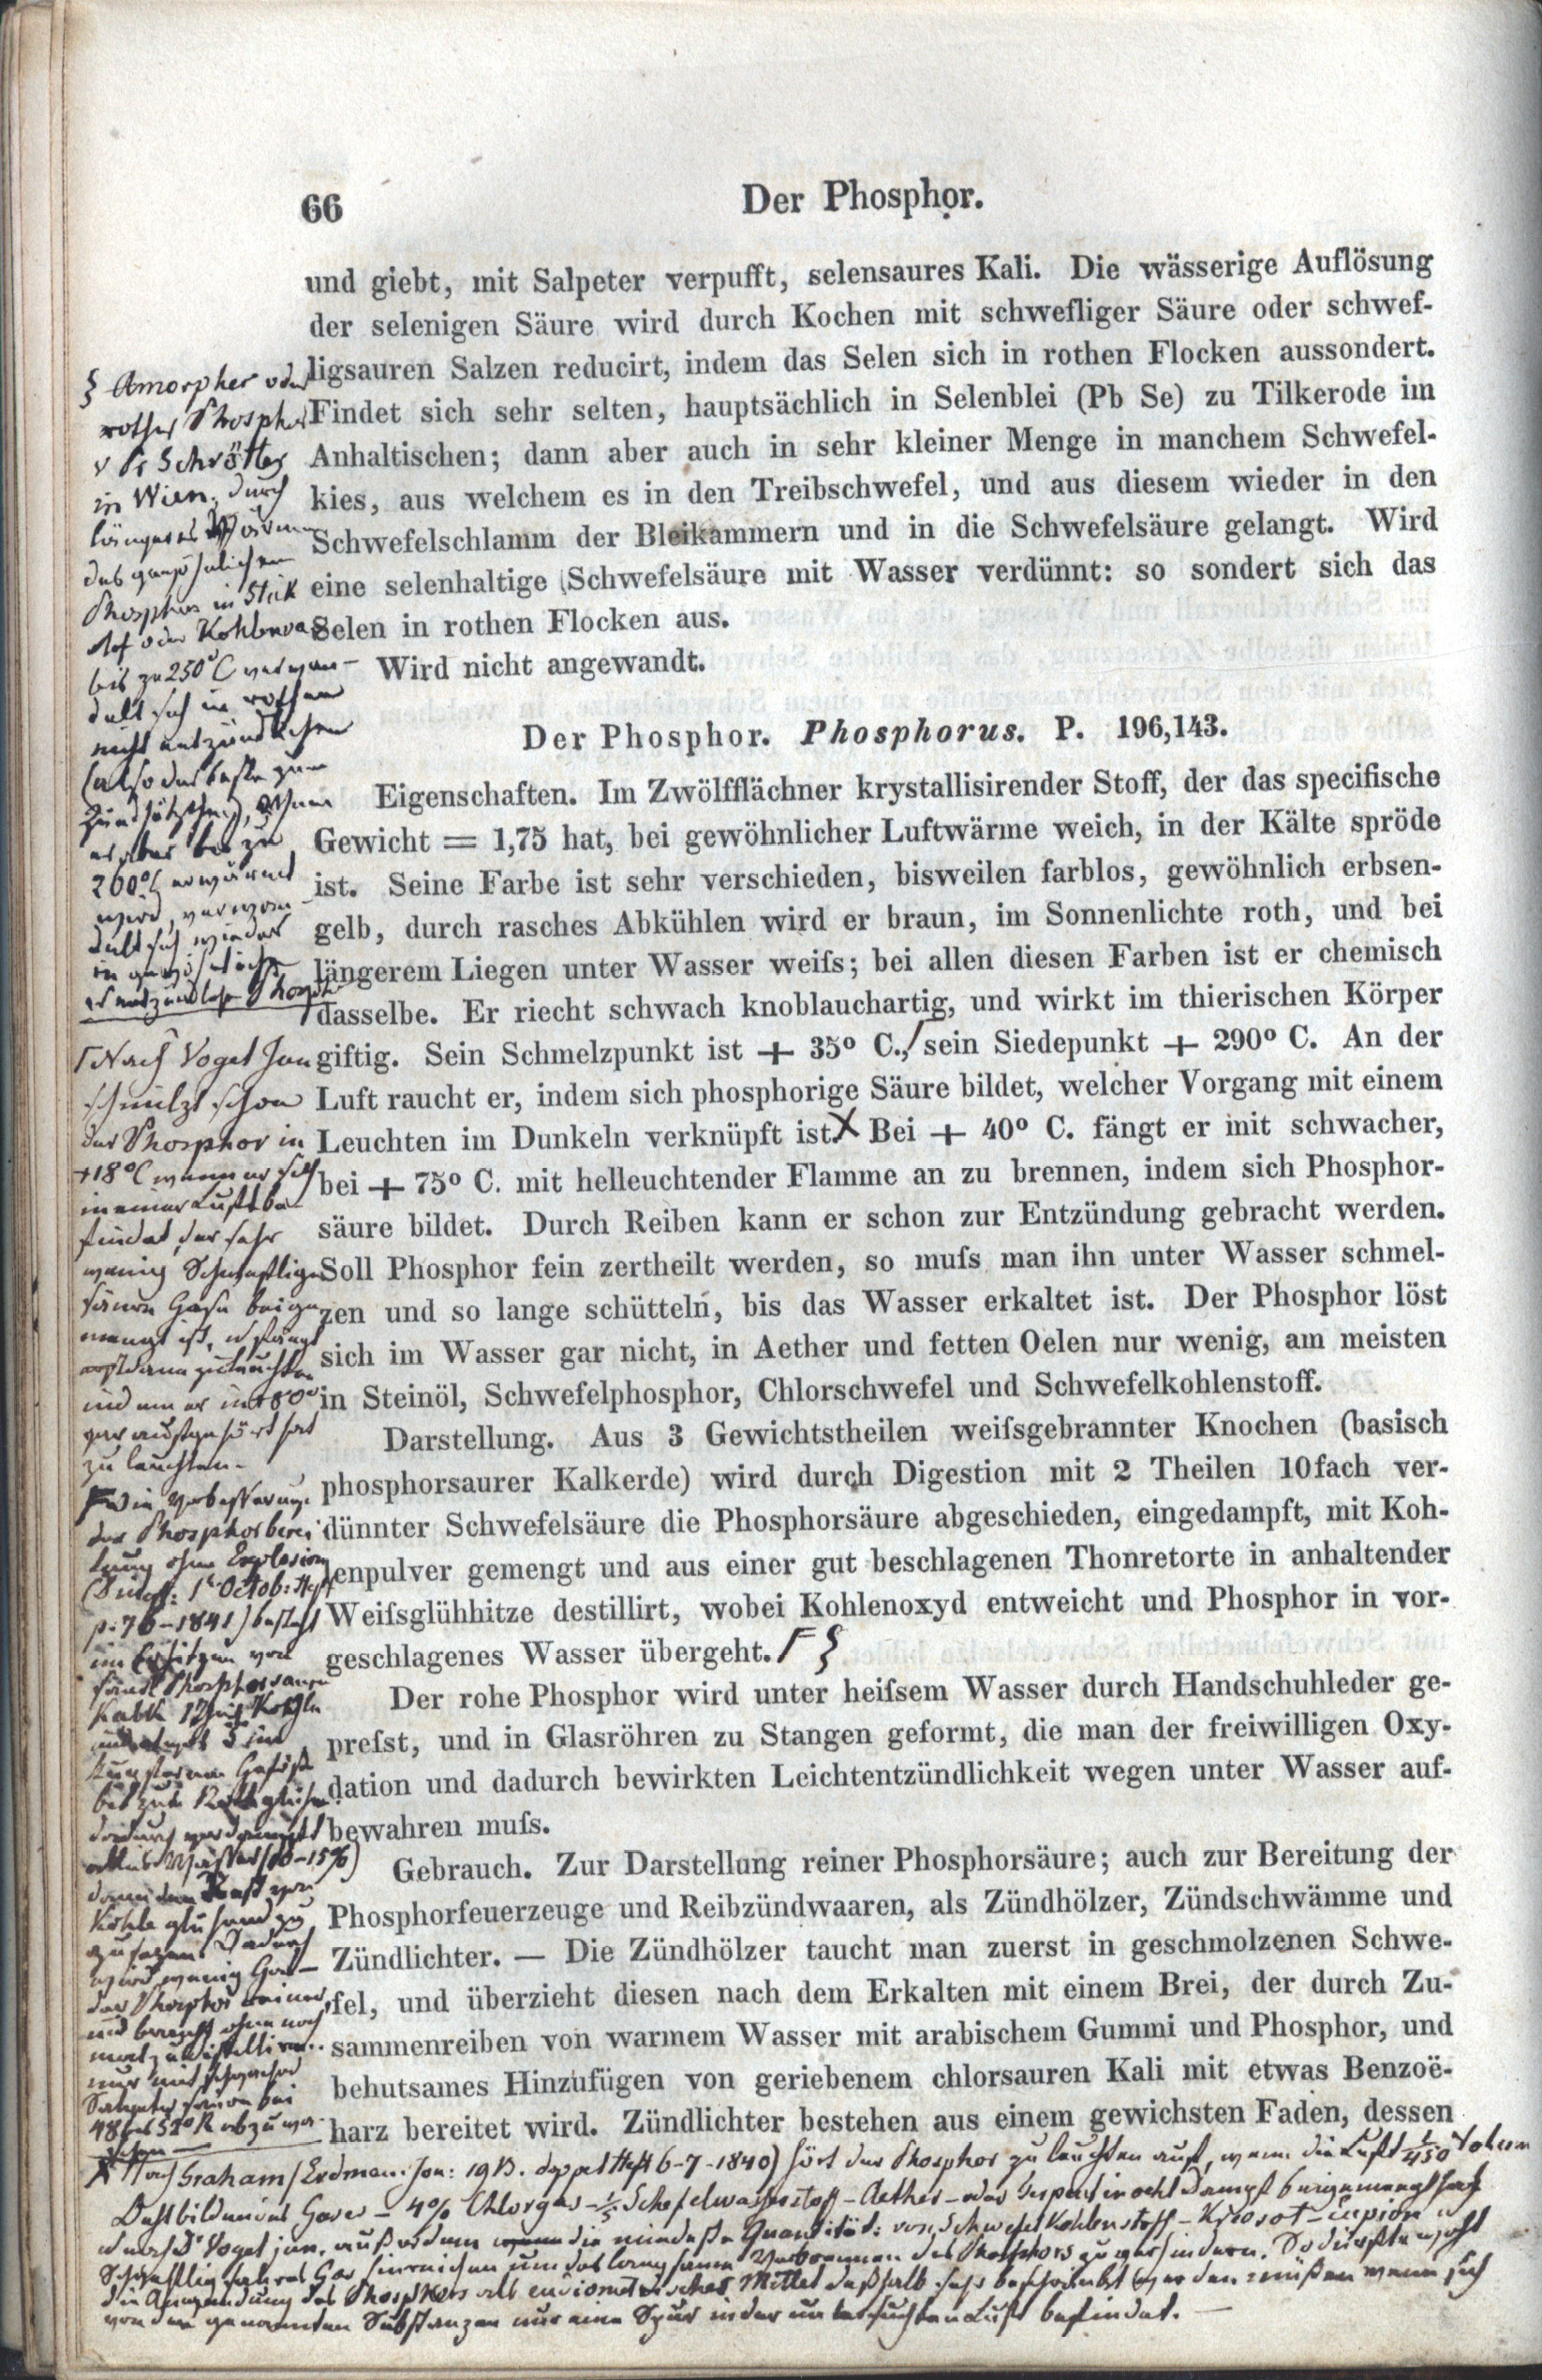 66
Der Phosphor.
und giebt, mit Salpeter verpufft, selensaures Kali. Die wässerige Auflösung
der selenigen Säure wird durch Kochen mit schwefliger Säure oder schwef-
ligsauren Salzen reducirt, indem das Selen sich in rothen Flocken aussondert.
Findet sich sehr selten, hauptsächlich in Selenblei (Pb Se) zu Tilkerode im
Anhaltischen; dann aber auch in sehr kleiner Menge in manchem Schwefel-
kies, aus welchem es in den Treibschwefel, und aus diesem wieder in den
Schwefelschlamm der Bleikammern und in die Schwefelsäure gelangt. Wird
eine selenhaltige Schwefelsäure mit Wasser verdünnt: so sondert sich das
Selen in rothen Flocken aus.
Wird nicht angewandt.
Der Phosphor. Phosphorus. P. 196,143.
Eigenschaften. Im Zwölfflächner krystallisirender Stoff, der das specifische
Gewicht = 1,75 hat, bei gewöhnlicher Luftwärme weich, in der Kälte spröde
ist. Seine Farbe ist sehr verschieden, bisweilen farblos, gewöhnlich erbsen-
gelb, durch rasches Abkühlen wird er braun, im Sonnenlichte roth, und bei
längerem Liegen unter Wasser weiſs; bei allen diesen Farben ist er chemisch
dasselbe. Er riecht schwach knoblauchartig, und wirkt im thierischen Körper
giftig. Sein Schmelzpunkt ist + 35° C., sein Siedepunkt + 290° C. An der
Luft raucht er, indem sich phosphorige Säure bildet, welcher Vorgang mit einem
Leuchten im Dunkeln verknüpft ist. X Bei + 40° C. fängt er mit schwacher,
bei + 75° C. mit helleuchtender Flamme an zu brennen, indem sich Phosphor-
säure bildet. Durch Reiben kann er schon zur Entzündung gebracht werden.
Soll Phosphor fein zertheilt werden, so muſs man ihn unter Wasser schmel-
zen und so lange schütteln, bis das Wasser erkaltet ist. Der Phosphor löst
sich im Wasser gar nicht, in Aether und fetten Oelen nur wenig, am meisten
in Steinöl, Schwefelphosphor, Chlorschwefel und Schwefelkohlenstoff.
Darstellung. Aus 3 Gewichtstheilen weiſsgebrannter Knochen (basisch
phosphorsaurer Kalkerde) wird durch Digestion mit 2 Theilen 10fach ver-
dünnter Schwefelsäure die Phosphorsäure abgeschieden, eingedampft, mit Koh-
lenpulver gemengt und aus einer gut beschlagenen Thonretorte in anhaltender
Weiſsglühhitze destillirt, wobei Kohlenoxyd entweicht und Phosphor in vor-
geschlagenes Wasser übergeht. F §
Der rohe Phosphor wird unter heiſsem Wasser durch Handschuhleder ge-
preſst, und in Glasröhren zu Stangen geformt, die man der freiwilligen Oxy-
dation und dadurch bewirkten Leichtentzündlichkeit wegen unter Wasser auf-
bewahren muſs.
Gebrauch. Zur Darstellung reiner Phosphorsäure; auch zur Bereitung der
Phosphorfeuerzeuge und Reibzündwaaren, als Zündhölzer, Zündschwämme und
Zündlichter. — Die Zündhölzer taucht man zuerst in geschmolzenen Schwe-
fel, und überzieht diesen nach dem Erkalten mit einem Brei, der durch Zu-
sammenreiben von warmem Wasser mit arabischem Gummi und Phosphor, und
behutsames Hinzufügen von geriebenem chlorsauren Kali mit etwas Benzoë-
harz bereitet wird. Zündlichter bestehen aus einem gewichsten Faden, dessen
§ Amorpher oder
rother Phosphor
v Pr Schrötter
in Wien. durch
längeres Wärmen
des gewöhnlichen
Phosphors in Stick
stof oder Kohlenwas
bis zu 250°C verwan-
delt sich in rothen
nicht entzündlichen
(also der beste zum
wird, verwan-
delt sich wieder
in gewöhnlichen
entzündlichen Phosphor
Nach Vogel Jun
schmilzt schon
der Phosphor in
+18°C wenn er sich
in einer Luft be
findet, der sehr
wenig Schwefligs
saures Gase beige
mengt ist, u fängt
zu leuchten.
der Phosphorberei
tung ohne Explosion
p: 76-1841) besteht
im Erhitzen von
Phosphorsauren
Kalk
X Nach Graham (Erdman. Jou: 19 B. doppel Heft 6-7-1840) hört der Phosphor zu leuchten auf, wenn die Luft 1/450 Volum
Oehlbildendes Gases - 4% Chlorgas - 1/5 Schefelwasserstoff - Aether - oder Terpentinoehl Dampf beigemengt hat
u nach Dr Vogel jun. außerdem die mindeste Quantität: von Schwefelkohlenstoff - Kreosot - Eupion u
Schwefligsaures Gas hinreichen um das langsame Verbrennen des Phosphors zu verhindern. So dürfte wohl
die Anwendung des Phosphors als eudiometrisches Mittel deßhalb sehr beschränkt werden müßen wenn sich
von den genannten Substanzen nur eine Spur in der untersuchten Luft befindet. —